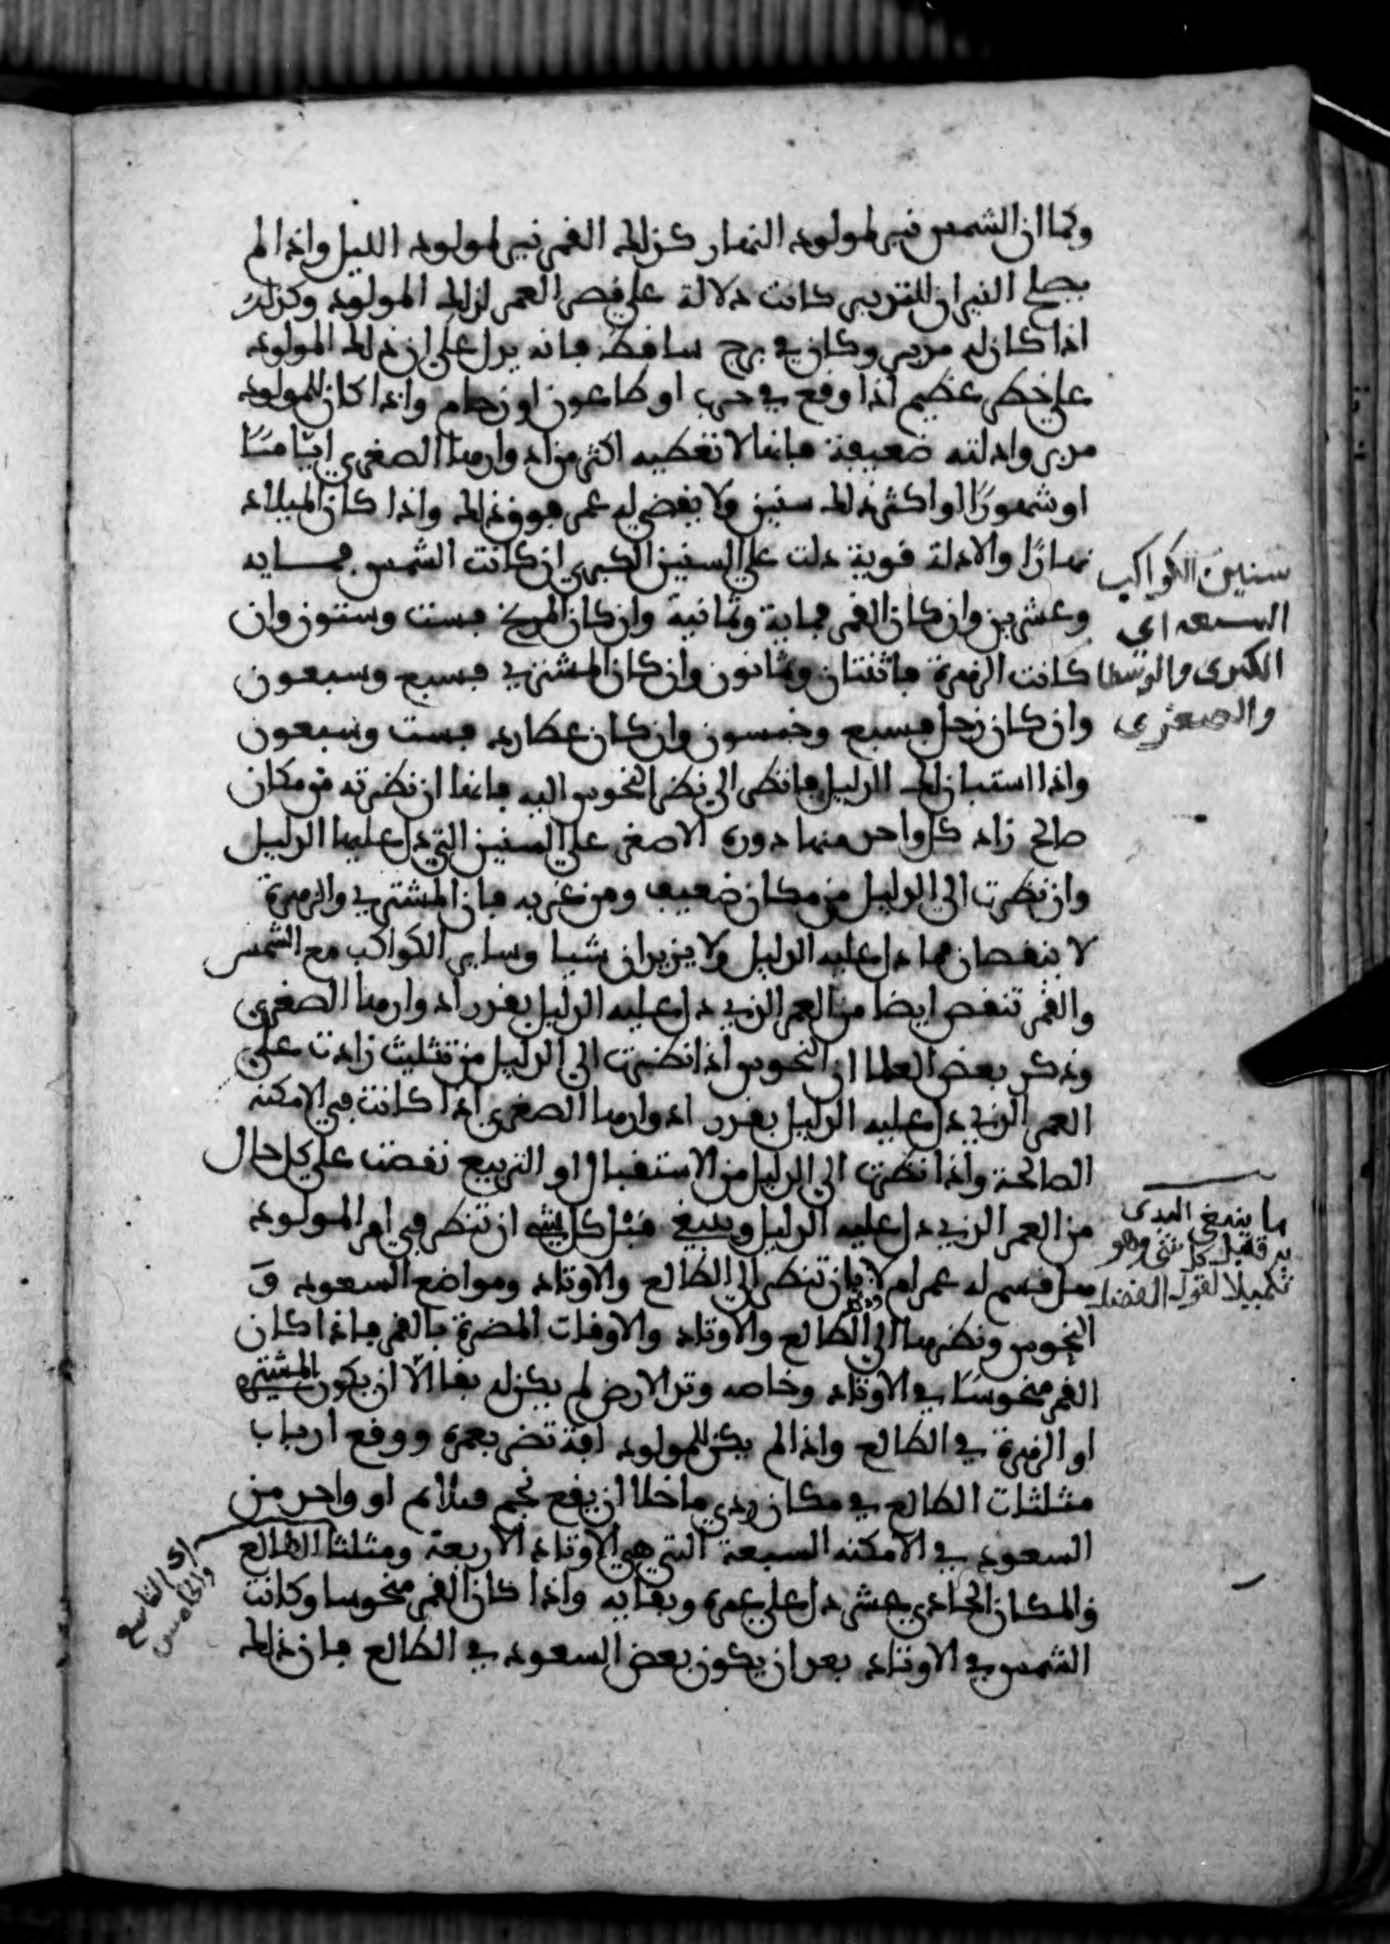 وكما ان الشمس نير لمولود النهار كذلك القمر نير لمولود الليل واذا لم
يصلح النيران للتدبير كانت دلالة على قصر العمر لذلك المولود وكذلك
اذا كان له مدبر وكان في برج ساقط فانه يدل على ان ذلك المولود
على خطر عظيم اذا وقع في حرب او طاعون او زحام واذا كان للمولود
مدبر وادلته ضعيفة فانها لا تعطيه اكثر من ادوارها الصغرى اياما
او شهورًا او اكثر ذلك سنين ولا يقضي له عمر فوق ذلك واذا كان الميلاد
نهارًا والادلة قوية دلت على السنين الكبرى ان كانت الشمس فماية
وعشرين وان كان القمر فماية وثمانية وان كان المريخ فست وستون وان
كانت الزهرة فاثنتان وثمانون وان كان المشتري فسبع وسبعون
وان كان زحل فسبع وخمسون وان كان عطارد فست وسبعون
واذا استبان لك الدليل فانظر الى نظر النحوس اليه فانها ان نظرته من مكان
صالح زاد كل واحد منها دوره الاصغر على السنين التي دل عليها الدليل
وان نظرت الى الدليل من مكان ضعيف ومن غربه فان المشتري والزهرة
لا ينقصان مما دل عليه الدليل ولا يزيدان شيا وساير الكواكب مع الشمس
والقمر تنقص ايضا من العمر الذي دل عليه الدليل بقدر ادوارها الصغرى
وذكر بعض العلما ان النحوس اذا نظرت الى الدليل من تثليث زادت على
العمر الذي دل عليه الدليل بقدر ادوارها الصغرى اذا كانت في الامكنة
الصالحة واذا نظرت الى الدليل من الاستقبال او التربيع نقصت على كل حال
من العمر الذي دل عليه الدليل وينبغي قبل كل شي ان تنظر في امر المولود
هل قسم له عمر ام لا بان تنظر الى الطالع والاوتاد ومواضع السعود و
النحوس ونظرها الى الطالع والاوتاد والاوقات المضرة بالقمر فاذا كان
القمر منحوسًا في الاوتاد وخاصه وتد الارض لم يكن له بقا الّا ان يكون المشتري
او الزهرة في الطالع واذا لم يكن للمولود افة تضر بعمره ووقع ارباب
مثلثات الطالع في مكان ردي ما خلا ان يقع نجم ملايم او واحد من
السعود في الامكنه السبعة التي هي الاوتاد الاربعة ومثلثا الطالع
والمكان الحادي عشر دل على عمره وبقايه واذا كان القمر منحوسا وكانت
الشمس في الاوتاد بعد ان يكون بعض السعود في الطالع فان ذلك
سنين الكواكب
السبعه اي
الكبرى والوسطا
والصغرى
ما ينبغي البدى
به قبل كل شي وهو
تكميلا لقول الفضلا
اي التاسع
والخامس